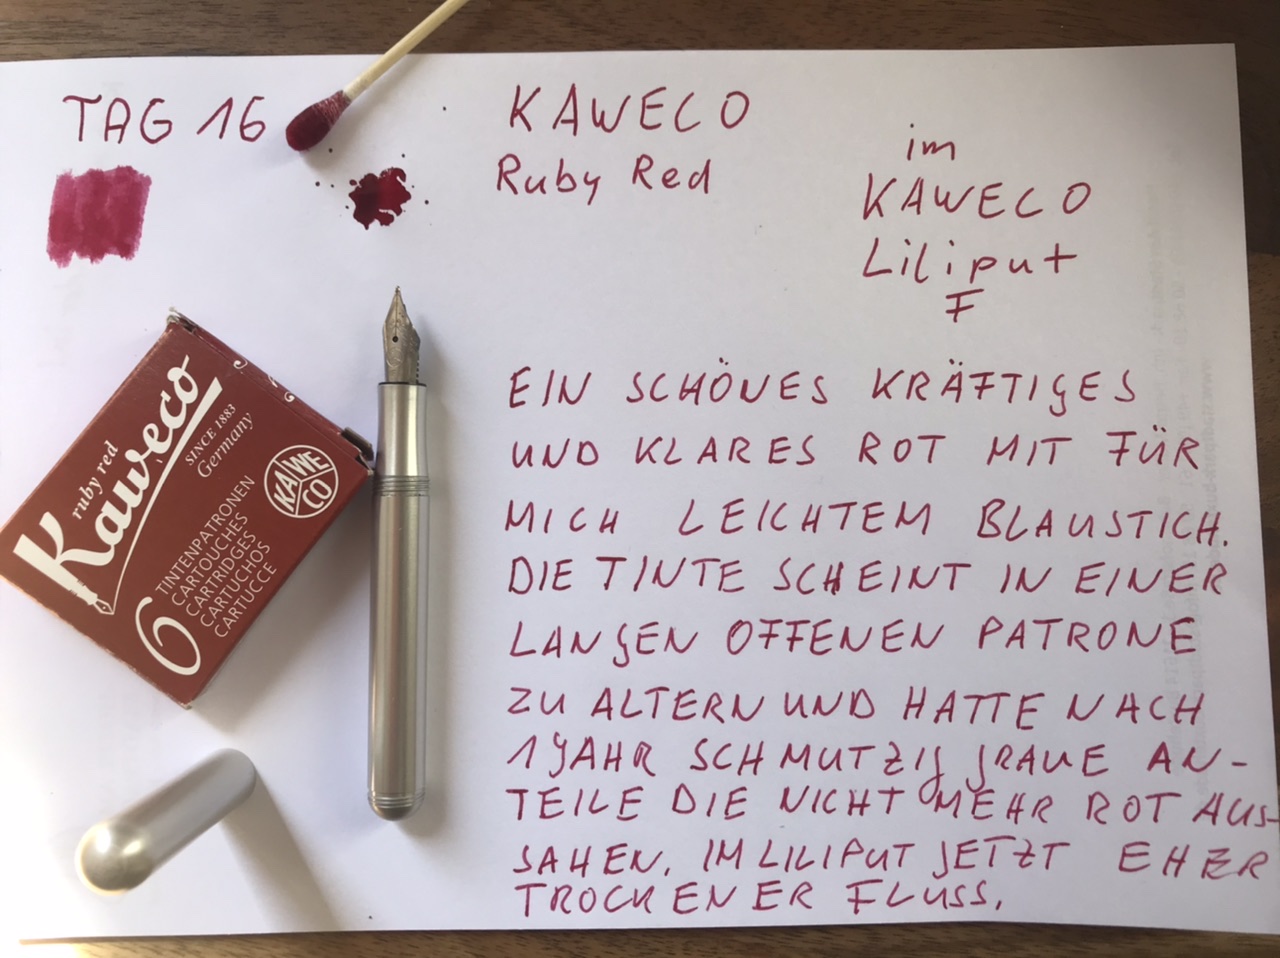 TAG 16
KAWECO
Ruby Red
im
KAWECO
Liliput
F
EIN SCHÖNES KRÄFTIGES
UND KLARES ROT MIT FÜR
MICH LEICHTEM BLAUSTICH.
DIE TINTE SCHEINT IN EINER
LANGEN OFFENEN PATRONE
ZU ALTERN UND HATTE NACH
1 JAHR SCHMUTZIG GRAUE AN-
TEILE DIE NICHT MEHR ROT AUS-
SAHEN. IM LILIPUT JETZT EHER
TROCKENER FLUSS.
ruby red
Kaweco
SINCE 1883
Germany
KA
WE
CO
6
TINTENPATRONEN
CARTOUCHES
CARTRIDGES
CARTUCHOS
CARTUCCE